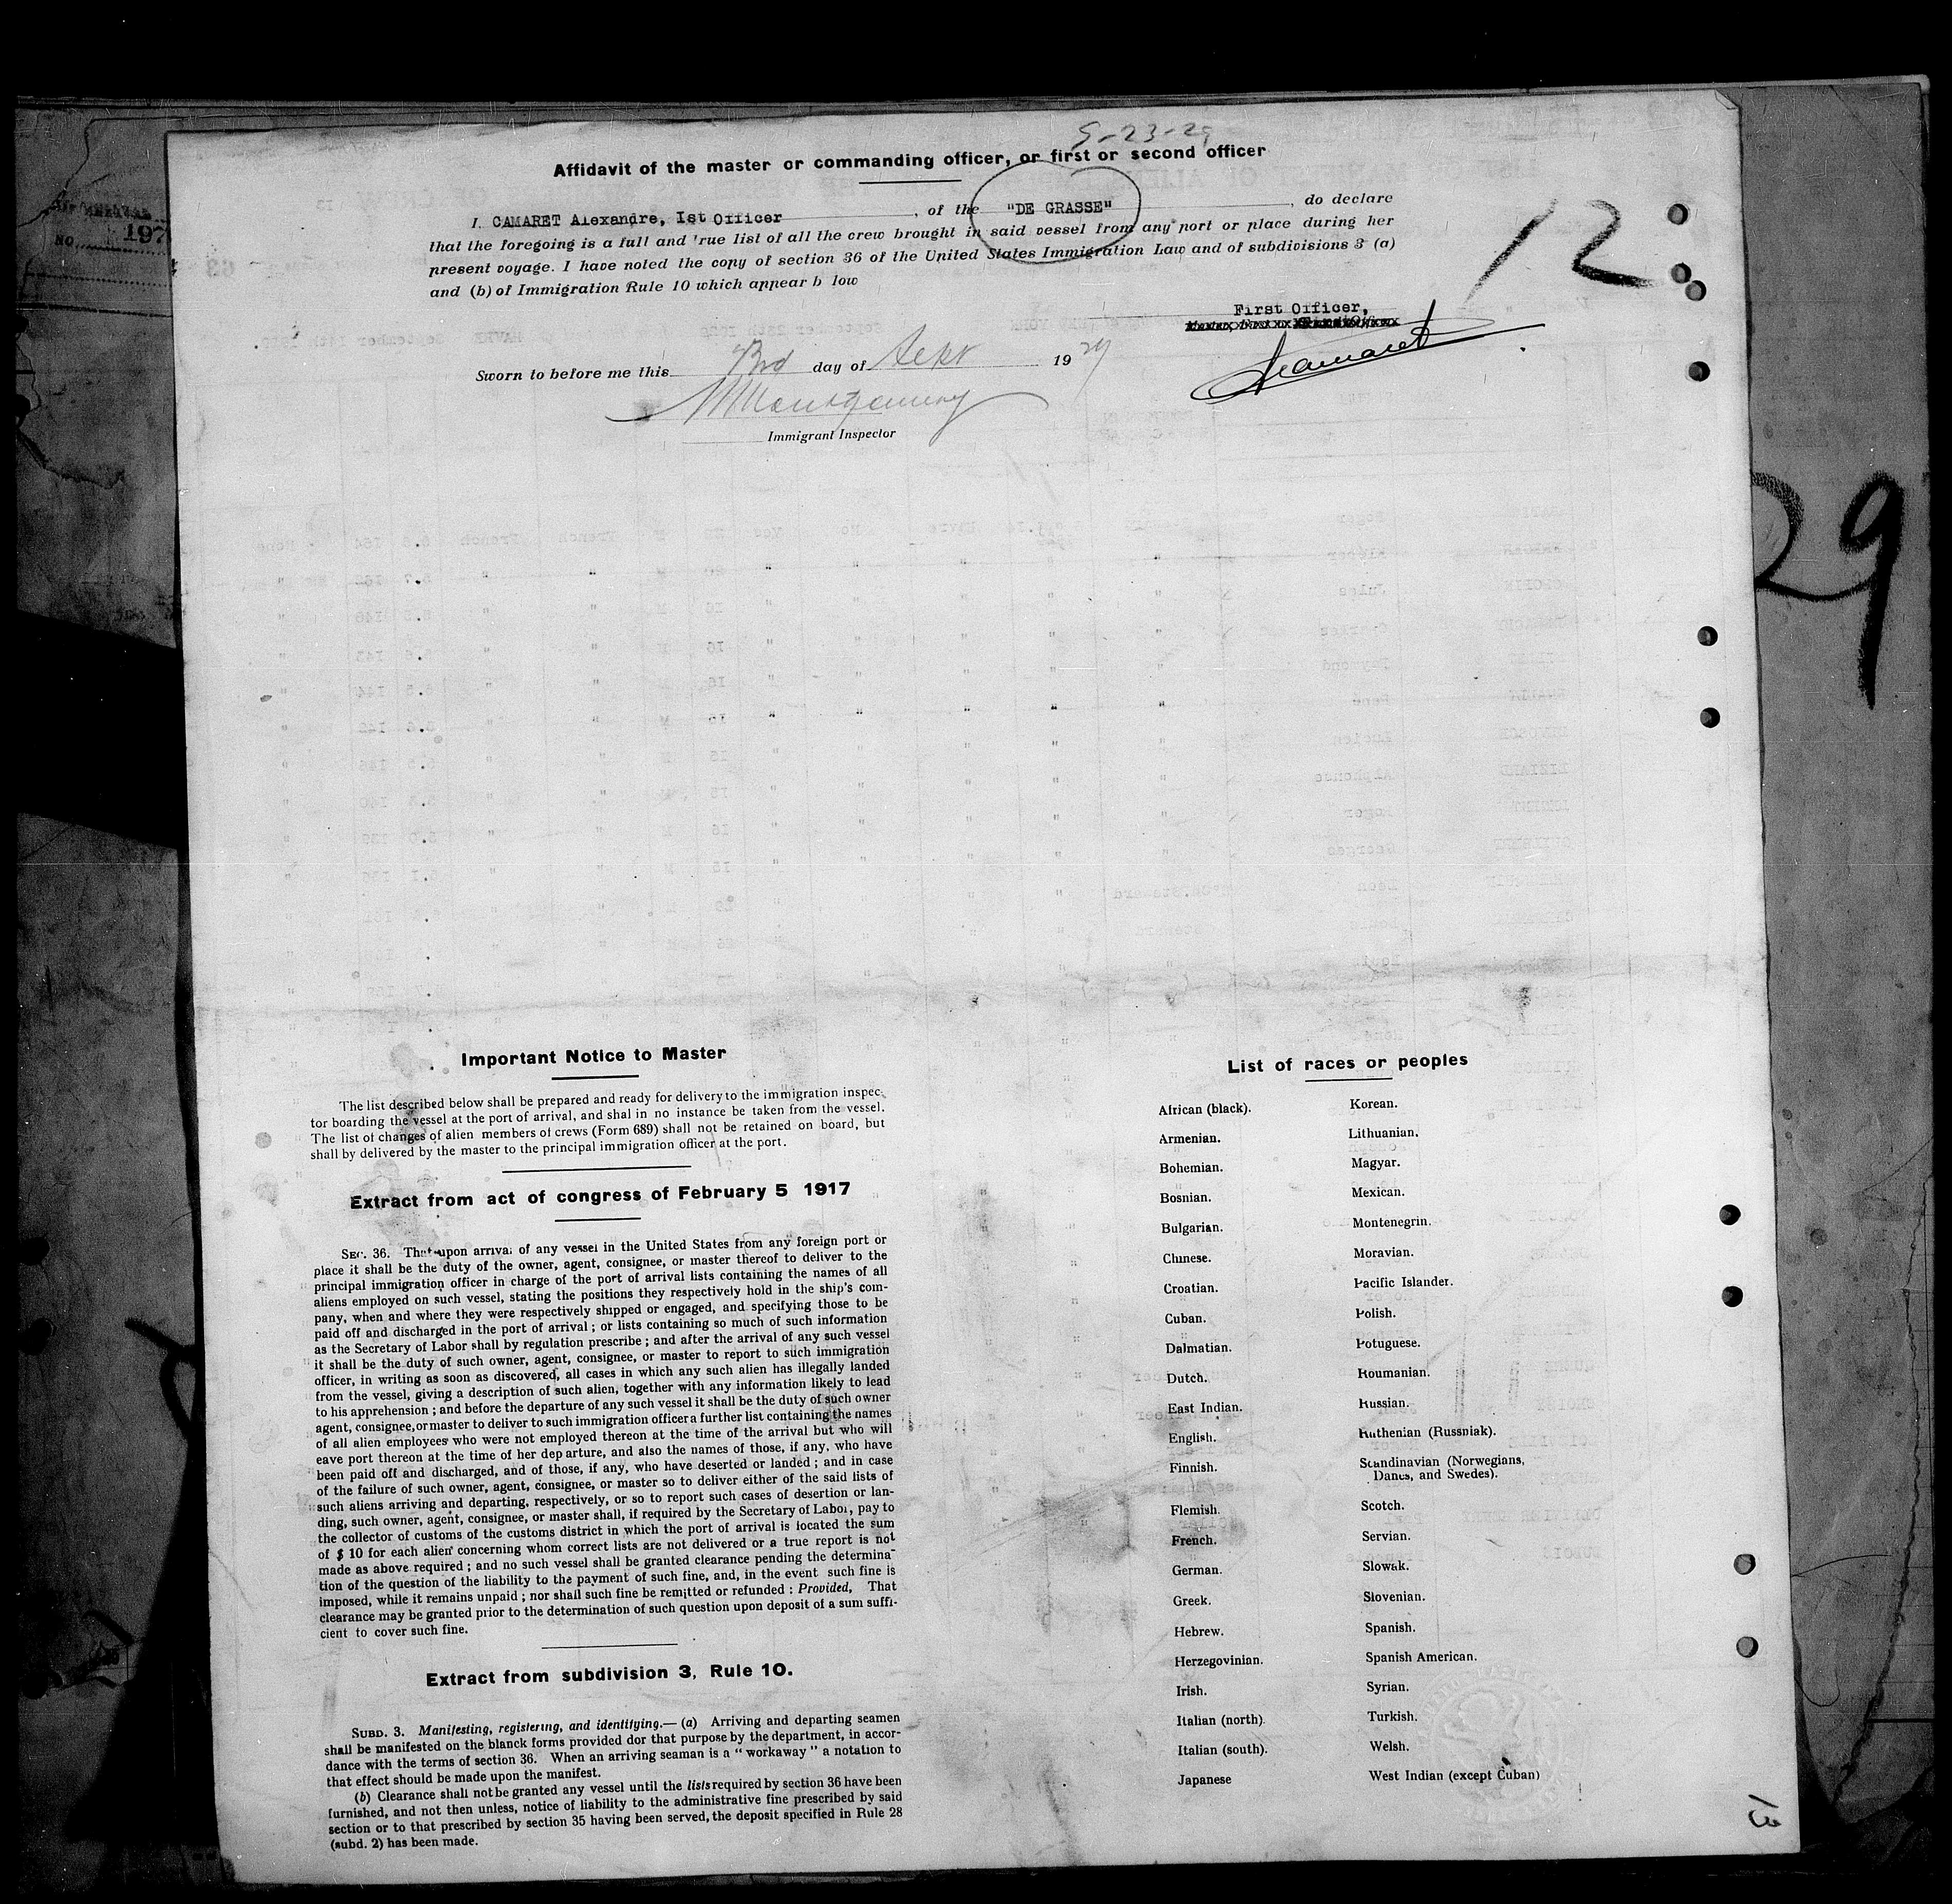 9-23-29
Affidavit of the master or commanding officer, or first or second officer
I. CAMARET Alexandre, Ist Officer , of the "DE GRASSE" , do declare
that the foregoing is a full and rue list of all the crew brought in said vessel from any port or place during her
present voyage. I have noted the copy of section 36 of the United States Immigration Law and of subdivisions 3 (a)
and (b) of Immigration Rule 10 which appear b low
12
First Officer,
Sworn to before me this 23rd day of Sept 1929
Camaret
Montgomery
Immigrant Inspector
197
29
Important Notice to Master
The list described below shall be prepared and ready for delivery to the immigration inspec-
tor boarding the vessel at the port of arrival, and shal in no instance be taken from the vessel.
The list of changes of alien members of crews (Form 689) shall not be retained on board, but
shall by delivered by the master to the principal immigration officer at the port.
Extract from act of congress of February 5 1917
SEC. 36. That upon arrival of any vessel in the United States from any foreign port or
place it shall be the duty of the owner, agent, consignee, or master thereof to deliver to the
principal immigration officer in charge of the port of arrival lists containing the names of all
aliens employed on such vessel, stating the positions they respectively hold in the ship's com-
pany, when and where they were respectively shipped or engaged, and specifying those to be
paid off and discharged in the port of arrival ; or lists containing so much of such information
as the Secretary of Labor shall by regulation prescribe ; and after the arrival of any such vessel
it shall be the duty of such owner, agent, consignee, or master to report to such immigration
officer, in writing as soon as discovered, all cases in which any such alien has illegally landed
from the vessel, giving a description of such alien, together with any information likely to lead
to his apprehension ; and before the departure of any such vessel it shall be the duty of such owner
agent, consignee, or master to deliver to such immigration officer a further list containing the names
of all alien employees who were not employed thereon at the time of the arrival but who will
eave port thereon at the time of her departure, and also the names of those, if any, who have
been paid off and discharged, and of those, if any, who have deserted or landed ; and in case
of the failure of such owner, agent, consignee, or master so to deliver either of the said lists of
such aliens arriving and departing, respectively, or so to report such cases of desertion or lan-
ding, such owner, agent, consignee, or master shall, if required by the Secretary of Labor, pay to
the collector of customs of the customs district in which the port of arrival is located the sum
of $ 10 for each alien concerning whom correct lists are not delivered or a true report is not
made as above required ; and no such vessel shall be granted clearance pending the determina-
tion of the question of the liability to the payment of such fine, and, in the event such fine is
imposed, while it remains unpaid ; nor shall such fine be remitted or refunded : Provided, That
clearance may be granted prior to the determination of such question upon deposit of a sum suffi-
cient to cover such fine.
Extract from subdivision 3, Rule 10.
SUBD. 3. Manifesting, registering, and identifying.— (a) Arriving and departing seamen
shall be manifested on the blanck forms provided dor that purpose by the department, in accor-
dance with the terms of section 36. When an arriving seaman is a “ workaway ” a notation to
that effect should be made upon the manifest.
(b) Clearance shall not be granted any vessel until the lists required by section 36 have been
furnished, and not then unless, notice of liability to the administrative fine prescribed by said
section or to that prescribed by section 35 having been served, the deposit specified in Rule 28
(subd. 2) has been made.
List of races or peoples
African (black).
Armenian.
Bohemian.
Bosnian.
Bulgarian.
Chinese.
Croatian.
Cuban.
Dalmatian.
Dutch.
East Indian.
English.
Finnish.
Flemish.
French.
German.
Greek.
Hebrew.
Herzegovinian.
Irish.
Italian (north).
Italian (south).
Japanese
Korean.
Lithuanian.
Magyar.
Mexican.
Montenegrin.
Moravian.
Pacific Islander.
Polish.
Potuguese.
Roumanian.
Russian.
Ruthenian (Russniak).
Scandinavian (Norwegians,
Danes, and Swedes).
Scotch.
Servian.
Slowak.
Slovenian.
Spanish.
Spanish American.
Syrian.
Turkish.
Welsh.
West Indian (except Cuban)
13